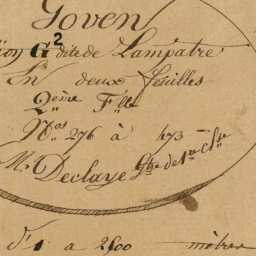 Joven
ion G² dite de Lampatre
En deux feuilles
2ème Flle
Nos 276 à 473
Mr Declaye Gtre de 1re Clse
De 1 a 2500 mètres